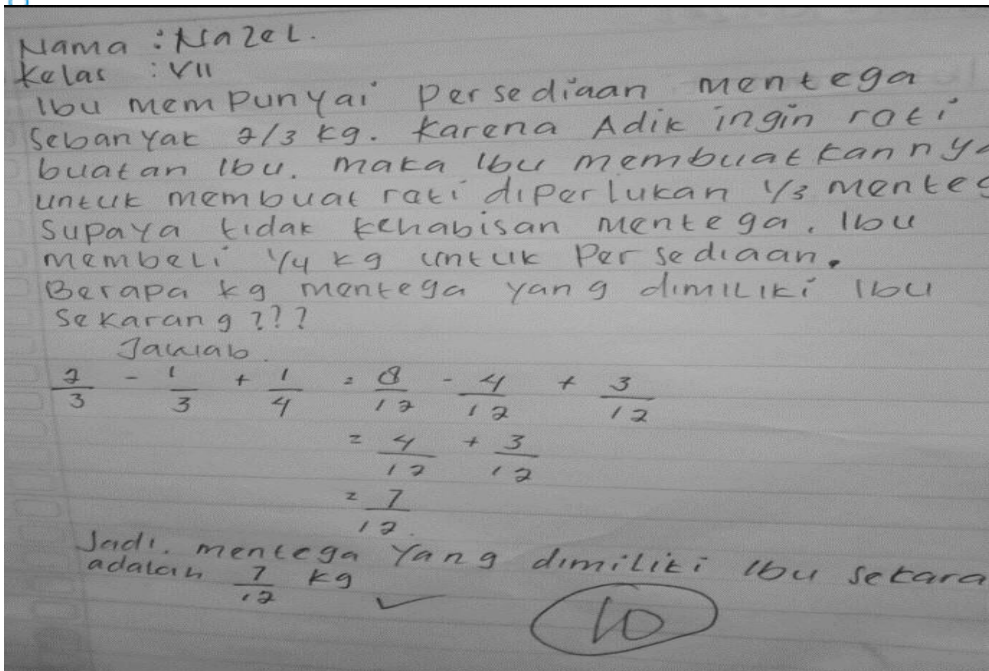 Nama : Nazel.
Kelas : VII
Ibu mempunyai persediaan mentega
sebanyak 2/3 kg. Karena Adik ingin roti
buatan Ibu. maka Ibu membuatkannya
untuk membuat roti diperlukan 1/3 menteg
Supaya tidak kehabisan mentega. Ibu
membeli 1/4 kg untuk persediaan.
Berapa kg mentega yang dimiliki Ibu
Sekarang???
Jawab.
2/3 - 1/3 + 1/4 = 8/12 - 4/12 + 3/12
= 4/12 + 3/12
= 7/12.
Jadi. mentega yang dimiliki Ibu sekara
adalah 7/12 kg ✓
10